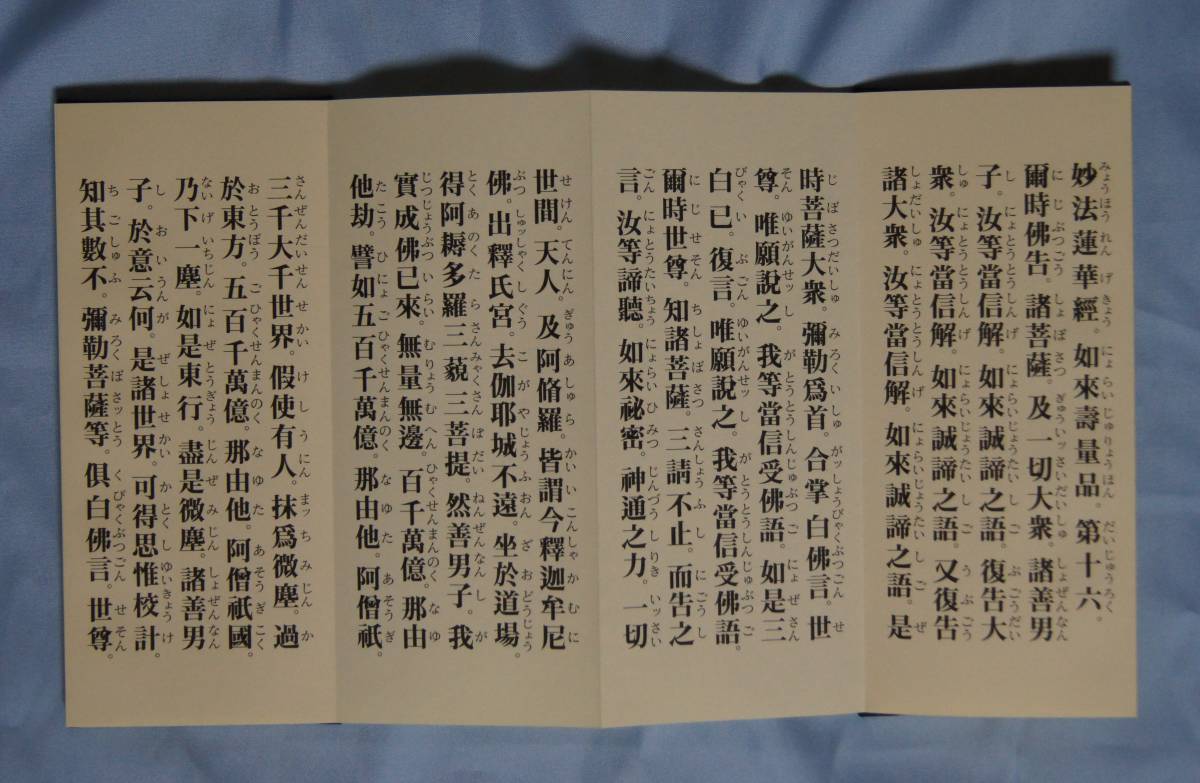 妙法蓮華經。如來壽量品。第十六。
爾時佛告。諸菩薩。及一切大衆。諸善男
子。汝等當信解。如來誠諦之語。復告大
衆。汝等當信解。如來誠諦之語。又復告
諸大衆。汝等當信解。如來誠諦之語。是
時菩薩大衆。彌勒爲首。合掌白佛言。世
尊。唯願說之。我等當信受佛語。如是三
白已。復言。唯願說之。我等當信受佛語。
爾時世尊。知諸菩薩。三請不止。而告之
言。汝等諦聽。如來祕密。神通之力。一切
世間。天人。及阿脩羅。皆謂今釋迦牟尼
佛。出釋氏宮。去伽耶城不遠。坐於道場。
得阿耨多羅三藐三菩提。然善男子。我
實成佛已來。無量無邊。百千萬億。那由
他劫。譬如五百千萬億。那由他。阿僧祇。
三千大千世界。假使有人。抹爲微塵。過
於東方。五百千萬億。那由他。阿僧祇國。
乃下一塵。如是東行。盡是微塵。諸善男
子。於意云何。是諸世界。可得思惟校計。
知其數不。彌勒菩薩等。俱白佛言。世尊。